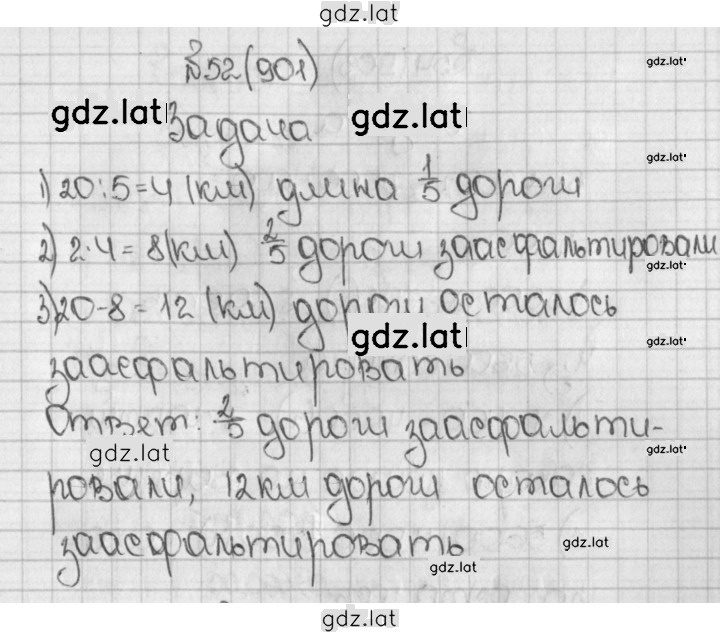 gdz.lat
№52(901)
gdz.lat
gdz.lat gdz.lat
Задача
gdz.lat
1) 20:5=4 (км) длина 1/5 дороги
gdz.lat
2) 2·4=8(км) 2/5 дороги заасфальтировали
gdz.lat
3) 20-8=12 (км) дороги осталось
gdz.lat gdz.lat
заасфальтировать
Ответ: 2/5 дороги заасфальти-
gdz.lat gdz.lat
ровали, 12км дороги осталось
заасфальтировать
gdz.lat
gdz.lat
gdz.lat